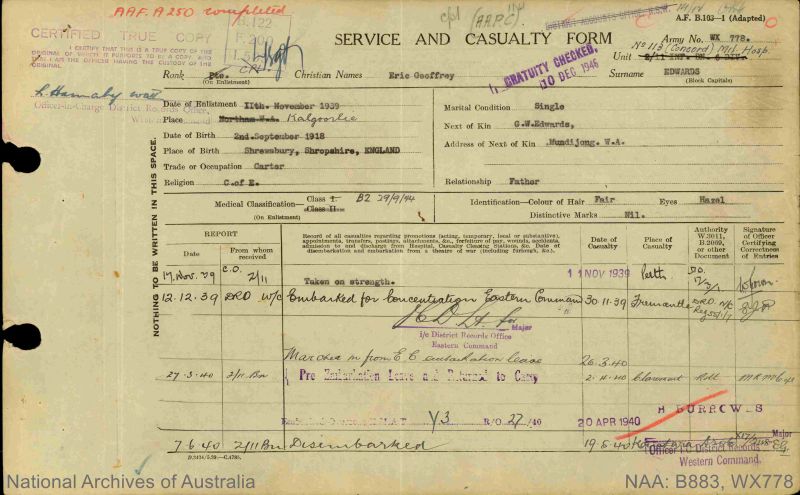 A.A.F. A 250 completed
CERTIFIED TRUE COPY
I CERTIFY THAT THIS IS A TRUE COPY OF THE
ORIGINAL OF WHICH IT PURPORTS TO BE A COPY AND
I AM THE OFFICER HAVING THE CUSTODY OF THE
ORIGINAL.
Officer-in-Charge District Records Office,
Western Command
B.122
F.200
cpl (AAPC)
A.F. B.103—1 (Adapted)
SERVICE AND CASUALTY FORM
Army No. WX 778.
No 113 (Concord) Mil. Hosp.
Unit 2/11 INF. BN. 6 DIV.
Rank Pte.
(On Enlistment)
Christian Names Eric Geoffrey
GRATUITY CHECKED,
10 DEC 1946
Surname EDWARDS
(Block Capitals)
Date of Enlistment 11th. November 1939
Place Northam W.A. Kalgoorlie
Date of Birth 2nd. September 1918
Place of Birth Shrewsbury, Shropshire, ENGLAND
Trade or Occupation Carter
Religion C. of E.
Marital Condition Single
Next of Kin G.W.Edwards,
Address of Next of Kin Mundijong. W.A.
Relationship Father
Medical Classification— Class I. B2 29/9/44
Class II.
(On Enlistment)
Identification—Colour of Hair Fair Eyes Hazel
Distinctive Marks Nil.
NOTHING TO BE WRITTEN IN THIS SPACE.
REPORT
Date
From whom received
Record of all casualties regarding promotions (acting, temporary, local or substantive),
appointments, transfers, postings, attachments, &c., forfeiture of pay, wounds, accidents,
admission to and discharge from Hospital, Casualty Clearing Stations, &c. Date of
disembarkation and embarkation from a theatre of war (including furlough, &c.).
Date of Casualty
Place of Casualty
Authority W.3011, B.2069, or other Document
Signature of Officer Certifying Correctness of Entries
17 Nov. 39 C.O. 2/11 Taken on strength. 11 NOV 1939 Perth D.O.
12.12.39 DRO W/C Embarked for Concentration Eastern Command 30.11.39 Fremantle DRO.
Major
i/c District Records Office
Eastern Command
Marched in from E.C. embarkation leave 26.3.40
27.3.40 2/11 Bn Pre Embarkation Leave and Returned to Camp 2.4.40 Claremont
Y3 R/O 27/40 20 APR 1940 H BURROWES
Major
7.6.40 2/11 Bn Disembarked 19.5.40 Kantara
Officer I/C District Records
Western Command.
National Archives of Australia
NAA: B883, WX778